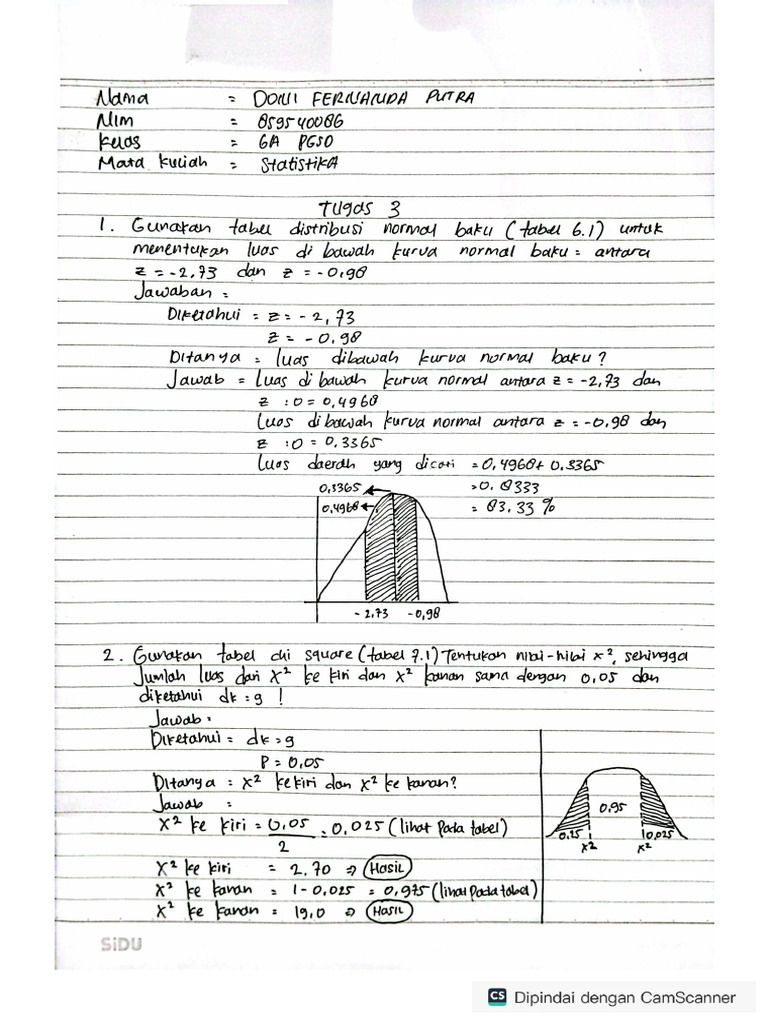 Nama = DONI FERNANDA PUTRA
Nim = 859540086
Kelas = 6A PGSD
Mata Kuliah = Statistika
Tugas 3
1. Gunakan tabel distribusi normal baku (tabel 6.1) untuk
menentukan luas di bawah kurva normal baku = antara
z = -2,73 dan z = -0,98
Jawaban =
Diketahui = z = - 2, 73
z = - 0, 98
Ditanya = luas dibawah kurva normal baku ?
Jawab = Luas di bawah kurva normal antara z = -2,73 dan
z : 0 = 0,4968
Luas di bawah kurva normal antara z = -0,98 dan
z : 0 = 0,3365
Luas daerah yang dicari = 0,4968 + 0,3365
= 0.8333
= 83.33 %
0,3365
0,4968
- 2,73 -0,98
2. Gunakan tabel chi square (tabel 7.1) Tentukan nilai-nilai x², sehingga
Jumlah luas dari X² ke kiri dan X² kanan sama dengan 0,05 dan
diketahui dk : 9 !
Jawab :
Diketahui = dk = 9
P = 0,05
Ditanya : X² ke kiri dan X² ke kanan?
Jawab :
X² ke kiri = 0,05 = 0,025 (lihat pada tabel)
2
X² ke kiri = 2,70 ⇒ Hasil
X² ke kanan = 1 - 0,025 = 0,975 (lihat pada tabel)
X² ke kanan = 19,0 ⇒ Hasil
0,95
0,25 0,025
x² x²
SiDU
CS Dipindai dengan CamScanner